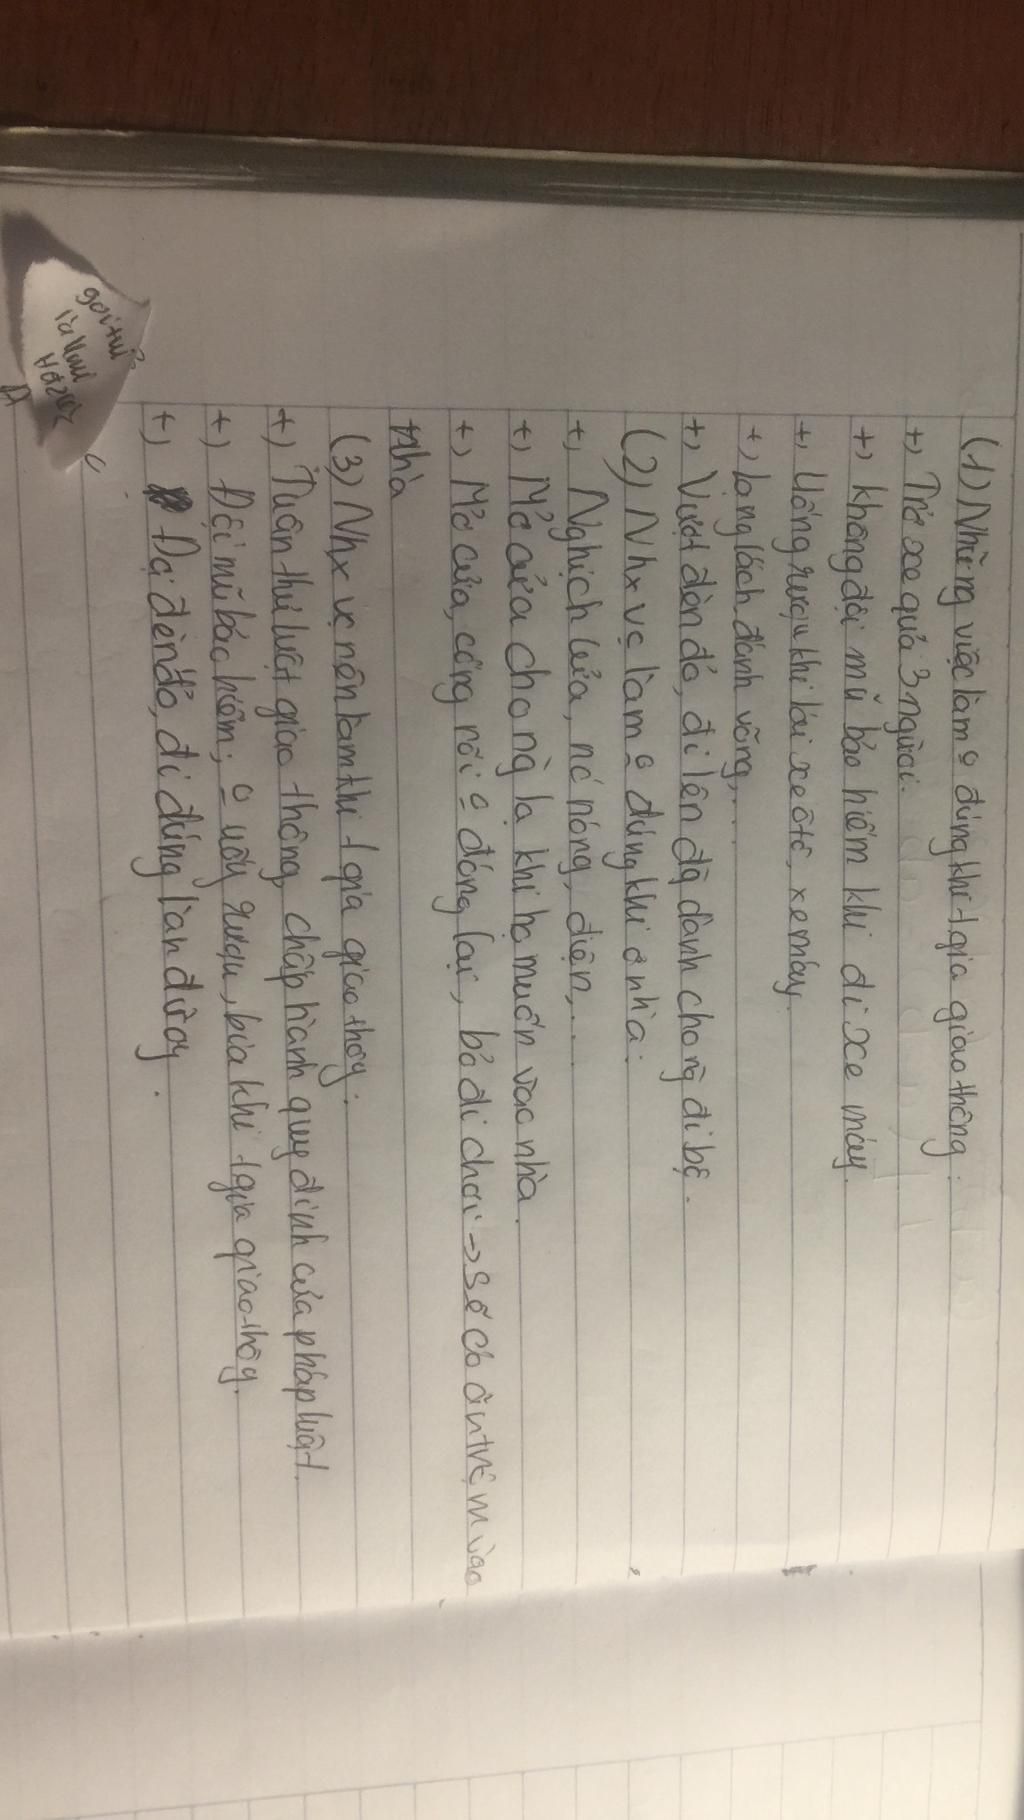 (1) Những việc làm o đúng khi tgia giao thông:
+) Trở xe quá 3 người.
+) không đội mũ bảo hiểm khi đi xe máy.
+) Uống rượu khi lái xe ôtô, xe máy.
+) lạng lách, đánh võng,...
+) Vượt đèn đỏ, đi lên đg dành cho ng đi bộ.
(2) Nhx vc làm o đúng khi ở nhà:
+) Nghịch lửa, nc nóng, điện,...
+) Mở cửa cho ng lạ khi họ muốn vào nhà.
+) Mở cửa, cổng rồi o đóng lại, bỏ đi chơi → sẽ có ăn trộm vào
nhà
(3) Nhx vc nên làm khi tgia giao thôg:
+) Tuân thủ luật giao thông, chấp hành quy định của pháp luật.
+) Đội mũ bảo hiểm; o uốg rượu, bia khi tgia giao thôg.
+) Đợi đèn đỏ, đi đúng làn đườg.